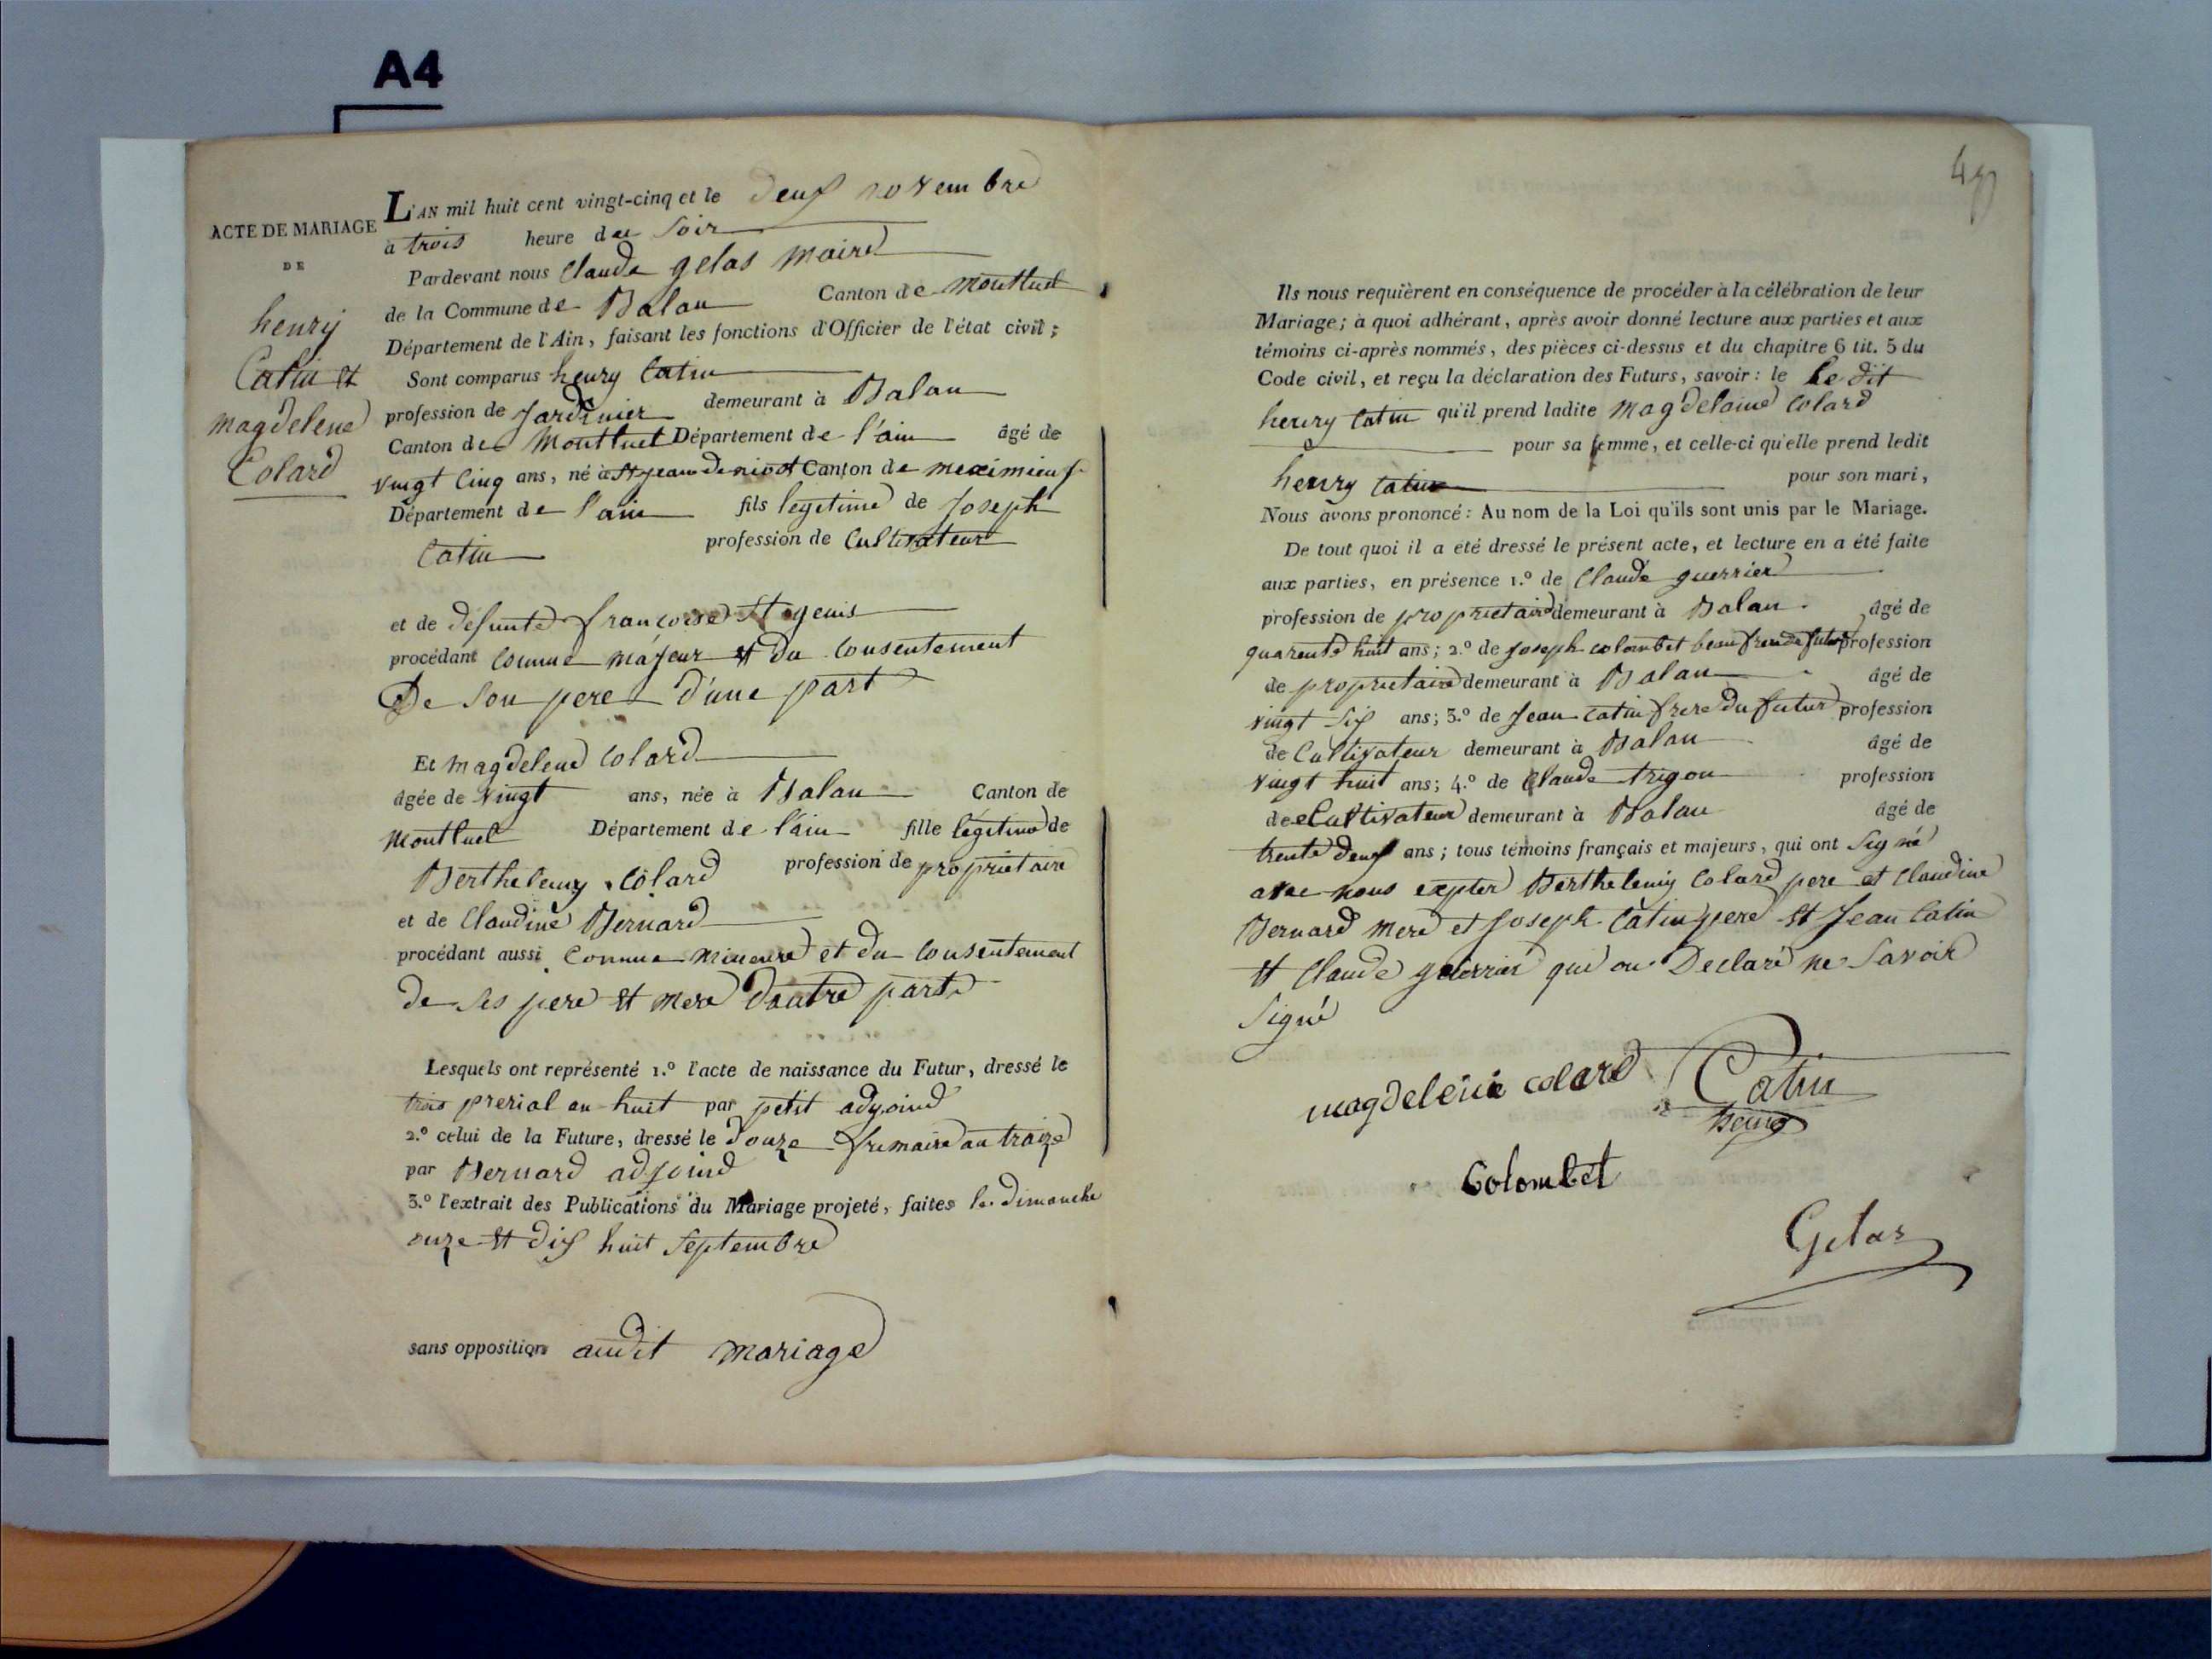 A4
ACTE DE MARIAGE
DE
henry
Catin et
magdelene
Colard
L'AN mil huit cent vingt-cinq et le deux novembre
à trois heure du soir
Pardevant nous Claude gelas maire
de la Commune de Balan Canton de Montluel
Département de l'Ain, faisant les fonctions d'Officier de l'état civil;
Sont comparus henry Catin
profession de Jardinier demeurant à Balan
Canton de Montluel Département de l'ain âgé de
vingt cinq ans, né à St jean de niost Canton de meximieux
Département de l'ain fils legitime de Joseph
Catin profession de Cultivateur
et de defunte francoise St genis
procédant comme majeur et du consentement
De son pere d'une part
Et magdelene Colard
âgée de vingt ans, née à Balan Canton de
Montluel Département de l'ain fille legitime de
Berthelemy Colard profession de proprietaire
et de Claudine Bernard
procédant aussi comme mineure et du consentement
de ses pere et mere dautre part
Lesquels ont représenté 1.º l'acte de naissance du Futur, dressé le
trois prerial an huit par petit adjoind
2.º celui de la Future, dressé le douze frimaire an traize
par Bernard adjoind
3.º l'extrait des Publications du Mariage projeté, faites le dimanche
onze et dix huit septembre
sans opposition audit mariage
Ils nous requièrent en conséquence de procéder à la célébration de leur
Mariage; à quoi adhérant, après avoir donné lecture aux parties et aux
témoins ci-après nommés, des pièces ci-dessus et du chapitre 6 tit. 5 du
Code civil, et reçu la déclaration des Futurs, savoir: le le dit
henry Catin qu'il prend ladite magdelaine Colard
pour sa femme, et celle-ci qu'elle prend ledit
henry Catin pour son mari,
Nous avons prononcé: Au nom de la Loi qu'ils sont unis par le Mariage.
De tout quoi il a été dressé le présent acte, et lecture en a été faite
aux parties, en présence 1.º de Claude guerrier
profession de proprietaire demeurant à Balan âgé de
quarente huit ans; 2.º de Joseph colombet beau frere du futur profession
de proprietaire demeurant à Balan âgé de
vingt six ans; 3.º de Jean Catin frere du futur profession
de Cultivateur demeurant à Balan âgé de
vingt huit ans; 4.º de Claude trigon profession
de Cultivateur demeurant à Balan âgé de
trente deux ans; tous témoins français et majeurs, qui ont signé
avec nous expter Berthelemy Colard pere et Claudine
Bernard mere et Joseph Catin pere et Jean Catin
et Claude guerrier qui on Declaré ne Savoir
Signé
magdeleine colard Catin
henry
Colombet
Gelas